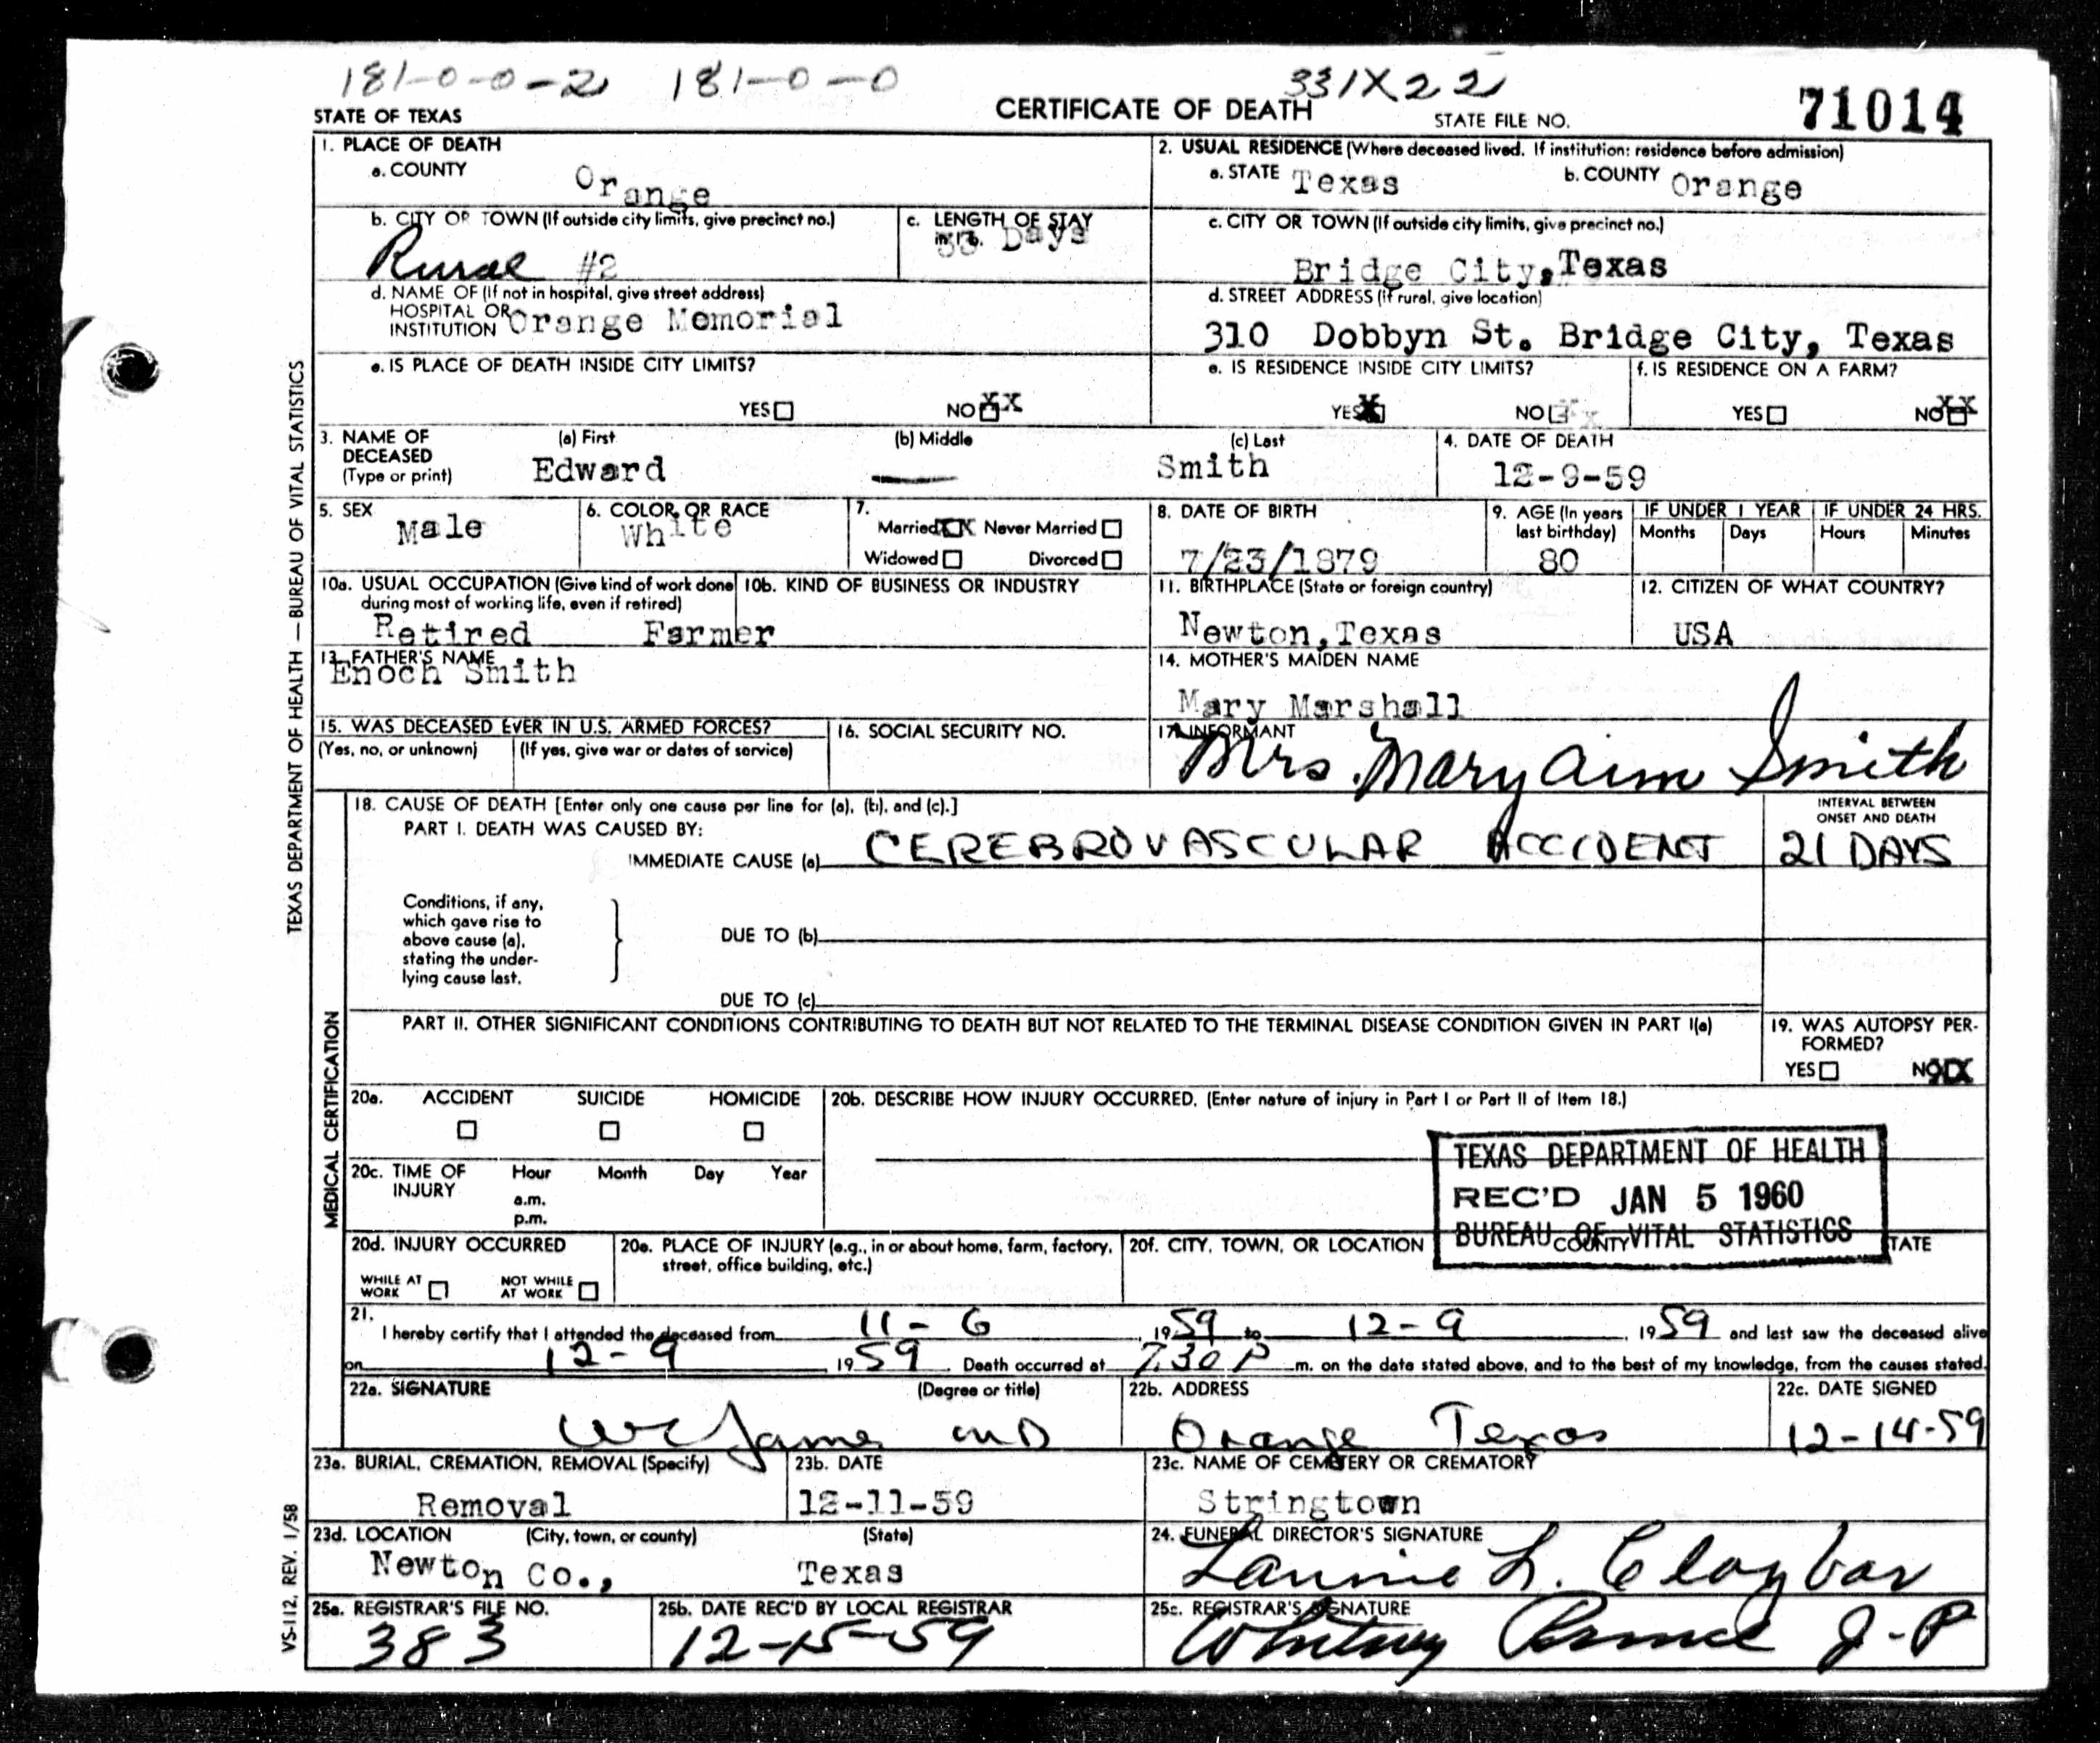 181-0-0-2 181-0-0 331X22
STATE OF TEXAS CERTIFICATE OF DEATH STATE FILE NO. 71014
1. PLACE OF DEATH
a. COUNTY Orange
2. USUAL RESIDENCE (Where deceased lived. If institution: residence before admission)
a. STATE Texas b. COUNTY Orange
b. CITY OR TOWN (If outside city limits, give precinct no.) Rural #2
c. LENGTH OF STAY in 1b. 33 Days
c. CITY OR TOWN (If outside city limits, give precinct no.)
Bridge City, Texas
d. NAME OF (If not in hospital, give street address)
HOSPITAL OR
INSTITUTION Orange Memorial
d. STREET ADDRESS (if rural, give location)
310 Dobbyn St. Bridge City, Texas
e. IS PLACE OF DEATH INSIDE CITY LIMITS?
YES NO XX
e. IS RESIDENCE INSIDE CITY LIMITS?
YES X NO
f. IS RESIDENCE ON A FARM?
YES NO XX
3. NAME OF DECEASED (Type or print)
(a) First Edward (b) Middle — (c) Last Smith
4. DATE OF DEATH
12-9-59
5. SEX
Male
6. COLOR OR RACE
White
7.
Married XX Never Married
Widowed Divorced
8. DATE OF BIRTH
7/23/1879
9. AGE (In years last birthday)
80
IF UNDER 1 YEAR
Months Days
IF UNDER 24 HRS.
Hours Minutes
10a. USUAL OCCUPATION (Give kind of work done during most of working life, even if retired)
Retired Farmer
10b. KIND OF BUSINESS OR INDUSTRY
11. BIRTHPLACE (State or foreign country)
Newton, Texas
12. CITIZEN OF WHAT COUNTRY?
USA
13. FATHER'S NAME
Enoch Smith
14. MOTHER'S MAIDEN NAME
Mary Marshall
15. WAS DECEASED EVER IN U.S. ARMED FORCES?
(Yes, no, or unknown) (If yes, give war or dates of service)
16. SOCIAL SECURITY NO.
17. INFORMANT
Mrs. Mary Ann Smith
18. CAUSE OF DEATH [Enter only one cause per line for (a), (b), and (c).]
PART I. DEATH WAS CAUSED BY:
IMMEDIATE CAUSE (a) CEREBROVASCULAR ACCIDENT
INTERVAL BETWEEN
ONSET AND DEATH
21 DAYS
Conditions, if any,
which gave rise to
above cause (a),
stating the under-
lying cause last.
DUE TO (b)
DUE TO (c)
PART II. OTHER SIGNIFICANT CONDITIONS CONTRIBUTING TO DEATH BUT NOT RELATED TO THE TERMINAL DISEASE CONDITION GIVEN IN PART I(a)
19. WAS AUTOPSY PER-
FORMED?
YES NO X
20a. ACCIDENT SUICIDE HOMICIDE
20b. DESCRIBE HOW INJURY OCCURRED. (Enter nature of injury in Part I or Part II of Item 18.)
20c. TIME OF INJURY Hour Month Day Year
a.m.
p.m.
TEXAS DEPARTMENT OF HEALTH
REC'D JAN 5 1960
BUREAU OF VITAL STATISTICS
20d. INJURY OCCURRED
WHILE AT WORK NOT WHILE AT WORK
20e. PLACE OF INJURY (e.g., in or about home, farm, factory,
street, office building, etc.)
20f. CITY, TOWN, OR LOCATION COUNTY STATE
21.
I hereby certify that I attended the deceased from 11-6, 1959 to 12-9, 1959 and last saw the deceased alive
on 12-9 1959. Death occurred at 7:30 P m. on the date stated above, and to the best of my knowledge, from the causes stated.
22a. SIGNATURE (Degree or title)
WC James MD
22b. ADDRESS
Orange Texas
22c. DATE SIGNED
12-14-59
23a. BURIAL, CREMATION, REMOVAL (Specify)
Removal
23b. DATE
12-11-59
23c. NAME OF CEMETERY OR CREMATORY
Stringtown
23d. LOCATION (City, town, or county) (State)
Newton Co., Texas
24. FUNERAL DIRECTOR'S SIGNATURE
Lannie L. Claybar
25a. REGISTRAR'S FILE NO.
383
25b. DATE REC'D BY LOCAL REGISTRAR
12-15-59
25c. REGISTRAR'S SIGNATURE
Whitney J-P
TEXAS DEPARTMENT OF HEALTH — BUREAU OF VITAL STATISTICS
MEDICAL CERTIFICATION
VS-112, REV. 1/58